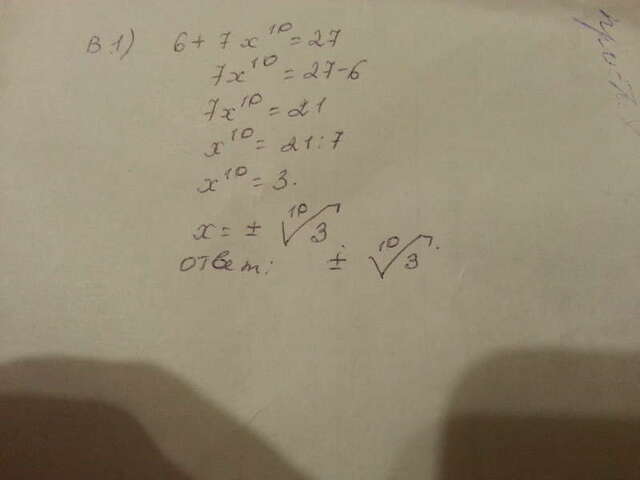 В 1) 6 + 7x¹⁰ = 27
7x¹⁰ = 27-6
7x¹⁰ = 21
x¹⁰ = 21:7
x¹⁰ = 3.
x = ± ¹⁰√3.
ответ: ± ¹⁰√3.